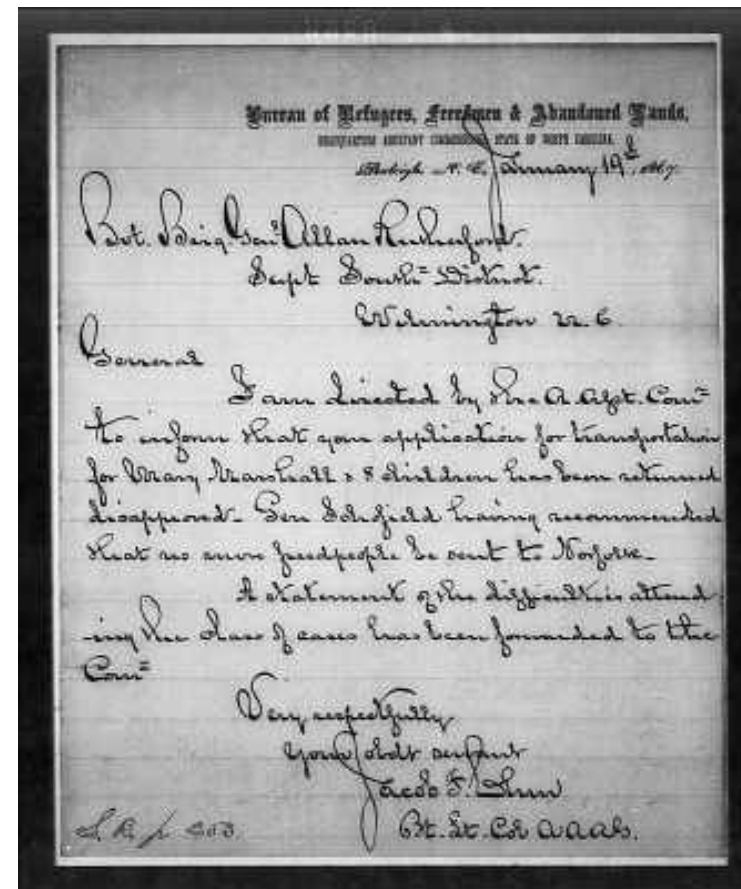 Bureau of Refugees, Freedmen & Abandoned Lands,
HEADQUARTERS ASSISTANT COMMISSIONER, STATE OF NORTH CAROLINA.
Raleigh N. C. January 19th, 1867.
Bvt. Brig. Genl. Allan Rutherford.
Supt South= District.
Wilmington N. C.
General
I am directed by the A. Asst. Com=
to inform that your application for transportation
for Mary Marshall & 8 children has been returned
disapproved. Gen Schofield having recommended
that no more freedpeople be sent to Norfolk.
A statement of the difficulties attend
ing the class of cases has been forwarded to the
Com=
Very respectfully
Your obdt servant
Jacob F.
Bt. Lt. Col A A A G.